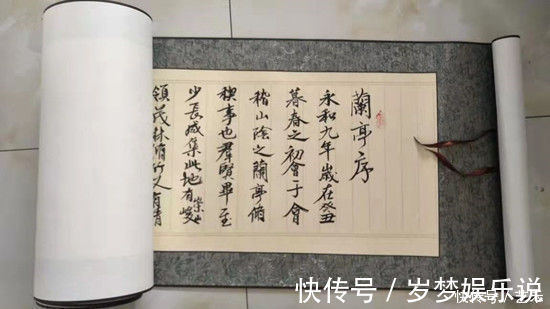 蘭亭序
永和九年歲在癸丑
暮春之初會于會
稽山陰之蘭亭脩
稧事也羣賢畢至
少長咸集此地有崇山峻
領茂林脩竹又有清
快传号 / 岁梦娱乐说